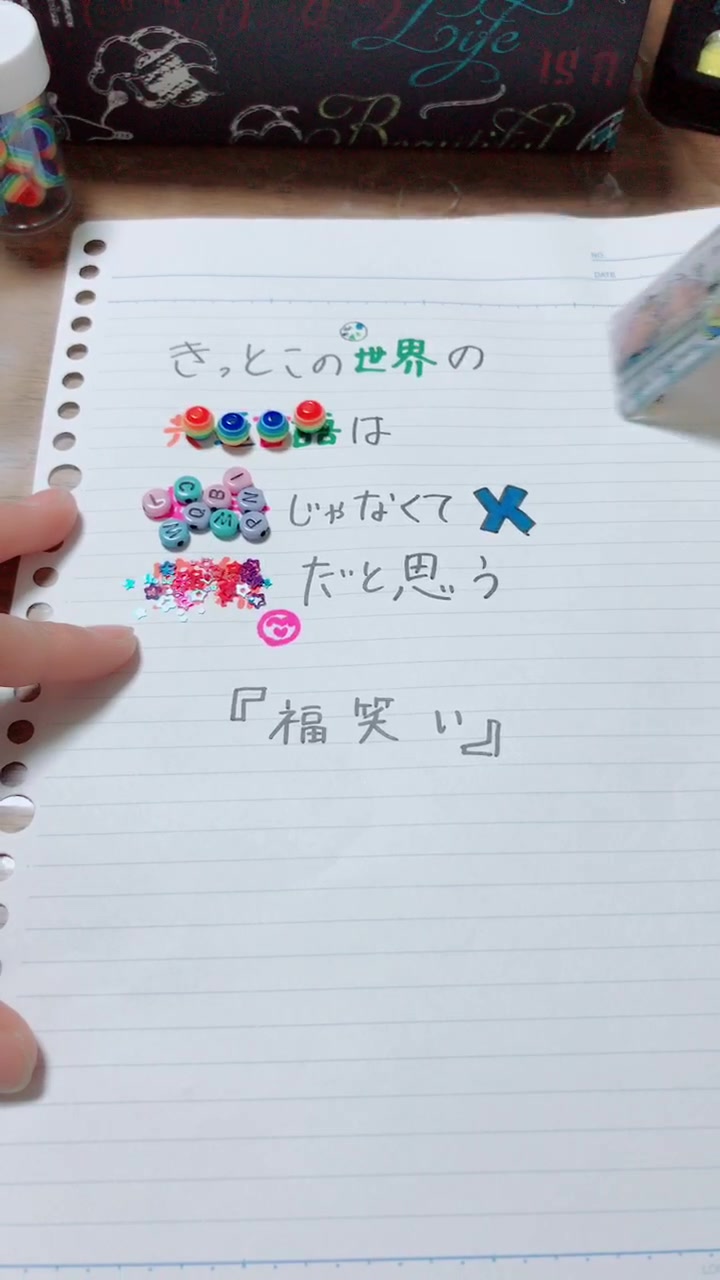 Life
is u
Beautiful
NO.
DATE
きっとこの世界の
語は
じゃなくて
だと思う
『福笑い』